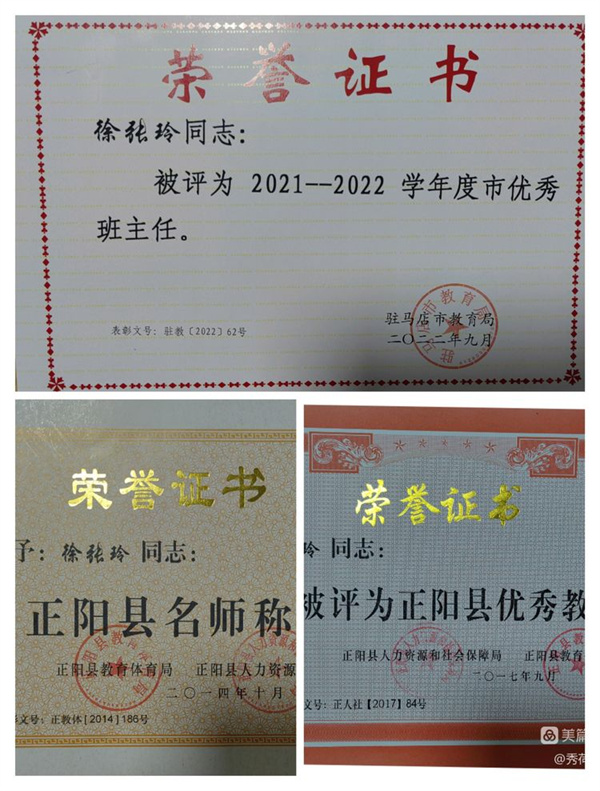 荣誉证书
徐张玲同志：
被评为 2021--2022 学年度市优秀
班主任。
驻马店市教育局
表彰文号：驻教〔2022〕62号
二〇二二年九月
荣誉证书
予：徐张玲同志：
正阳县名师称
正阳县教育体育局 正阳县人力资源
二〇一四年十月
文号：正教体【2014】186号
荣誉证书
玲 同志：
被评为正阳县优秀教
正阳县人力资源和社会保障局 正阳县教育
二〇一七年九月
文号：正人社【2017】84号
美篇
@秀荷